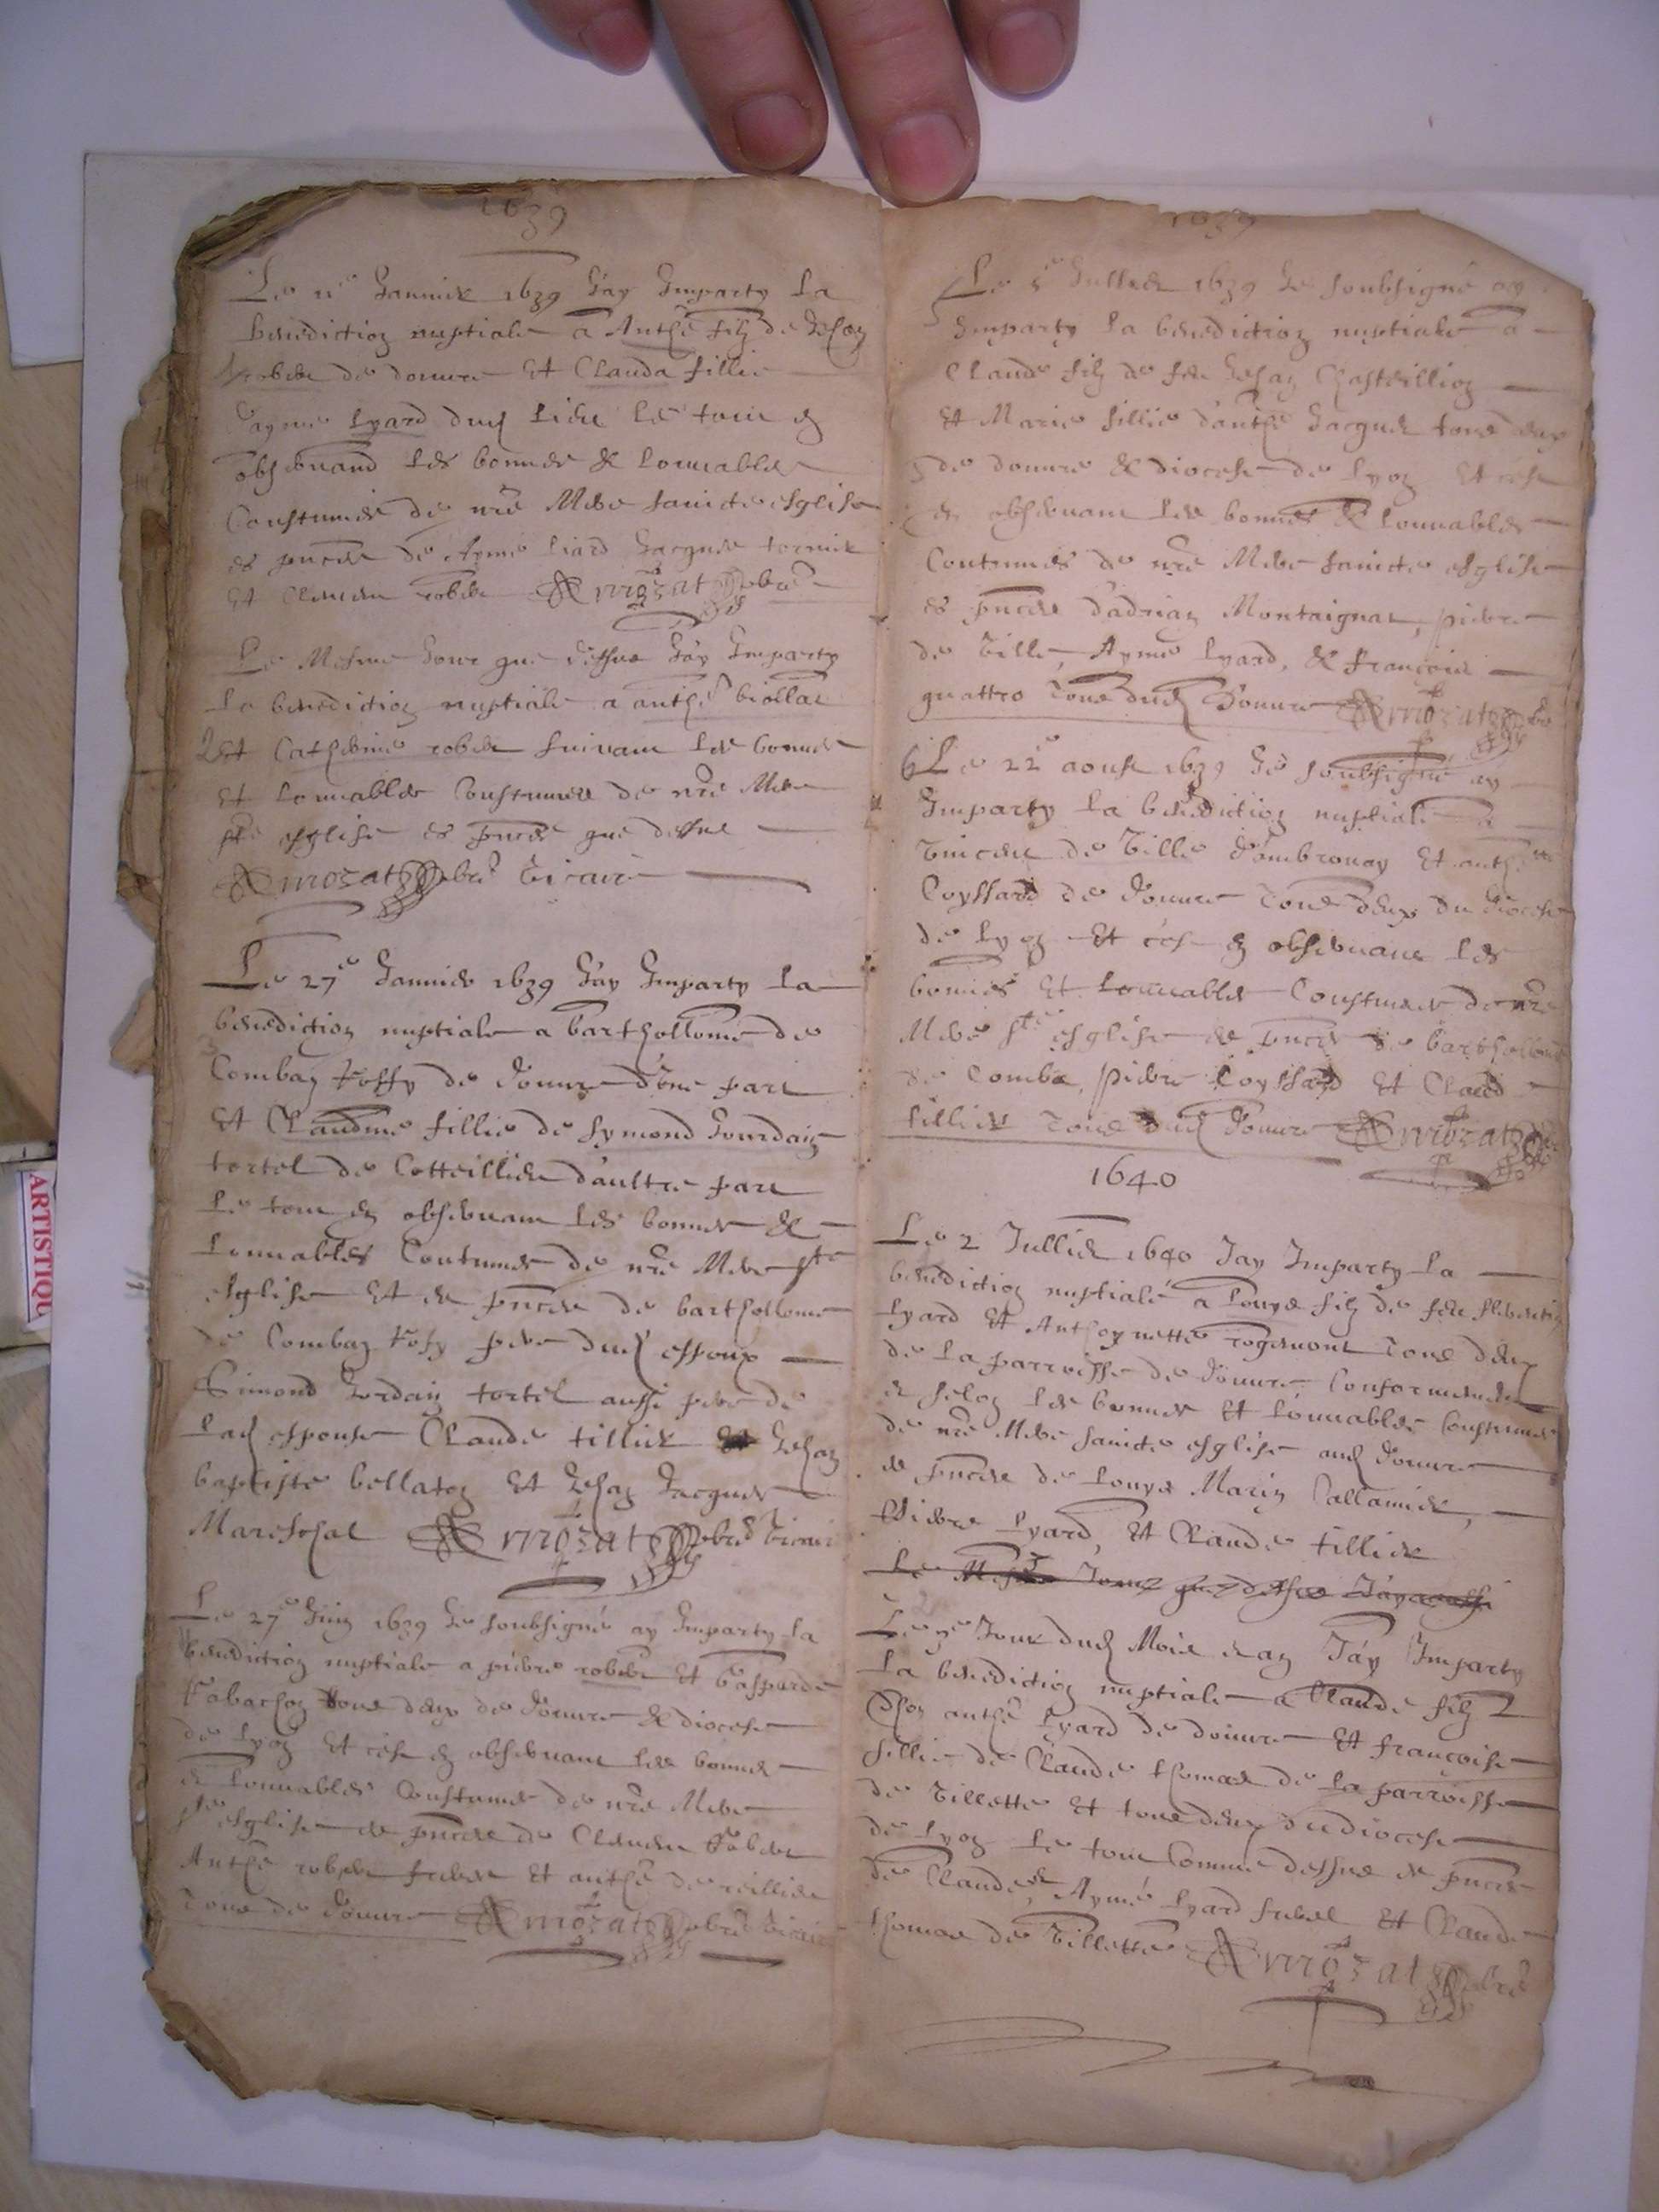 1639
Le 11e Janvier 1639 J'ay Imparty la
benediction nuptiale a Anthe filz de Jehan
rober de douvre Et Clauda fillie
Ayme Lyard dud lieu le tout en
observand les bonnes & louuables
Coustumes de nre Mere saincte esglise
es pnces de Ayme liard Jacques
Et Clemen rober Armozat pbre
Le Mesme Jour que dessus J'ay Imparty
la benediction nuptiale a anthe biollat
2 Et Catherine rober suivant les bonnes
Et louuables Coustumes de nre Mere
ste esglise es pnces que dessus
Armozat pbre vicaire
Le 27e Janvier 1639 J'ay Imparty la
benediction nuptiale a barthollome de
Combaz de douvre d'une part
Et Claudine fillie de Symond Jourdain
tortel de d'aultre part
le tout en observant les bonnes &
louuables Coutumes de nre Mere ste
esglise Et es pnces de barthollome
de Combaz pere dud espoux
Simond Jordain tortel aussi pere de
lad espouse Claude tillier Jehan
baptiste bellaton Et Jehan Jacques
Mareschal Armozat pbre vicaire
Le 27e Juin 1639 Je soubsigné ay Imparty la
benediction nuptiale a pierre rober Et Gasparde
tous deux de douvre & diocese
de Lyon Et ce en observant les bonnes
& louuables Coustumes de nre Mere
ste esglise es pnces de Clemen rober
Anthe rober freres Et anthe
tous de douvre Armozat pbre vicaire
1639
Le 5e Jullier 1639 Je soubsigné ay
Imparty la benediction nuptiale a
Claude filz de feu Jehan Chasteillion
Et Marie fillie d'anthe Jacques tous deux
5 de douvre & diocese de Lyon Et ce
en observant les bonnes & louuables
Coutumes de nre Mere saincte esglise
es pnces d'adrian Montaignat, pierre
de Ville, Ayme Lyard, & francois
quattro tous dud Douvre Armozat pbre
6 Le 22e aoust 1639 Je soubsigné ay
Imparty la benediction nuptiale a
Vincen de Ville d'ambronay Et anthe
Coyssard de douvre tous deux du diocese
de Lyon Et ce en observant les
bonnes Et louuables Coustumes de nre
Mere ste esglise es pnces de barthollome
de Comba, pierre Coyssard Et Claude
tillier tous dud douvre Armozat
1640
Le 2 Jullier 1640 Jay Imparty la
benediction nuptiale a Louys filz de feu
Lyard Et Anthoynette rogemont tous deux
de la parroisse de douvre, Conformement
& selon les bonnes Et louuables Coustumes
de nre Mere saincte esglise aud douvre
es pnces de Louys Marin Callamier,
Pierre Lyard, Et Claude tillier
Le Mesme Jour que dessus J'ay aussi
Le Jour dud Mois & an J'ay Imparty
la benediction nuptiale a Claude filz
anthe Lyard de douvre Et françoise
fillie de Claude thomas de la parroisse
de Villette Et tous deux du diocese
de Lyon Le tout Comme dessus es pnces
de Claude, Aymé Lyard freres Et Claude
thomas de Villette Armozat pbre
ARTISTIQU